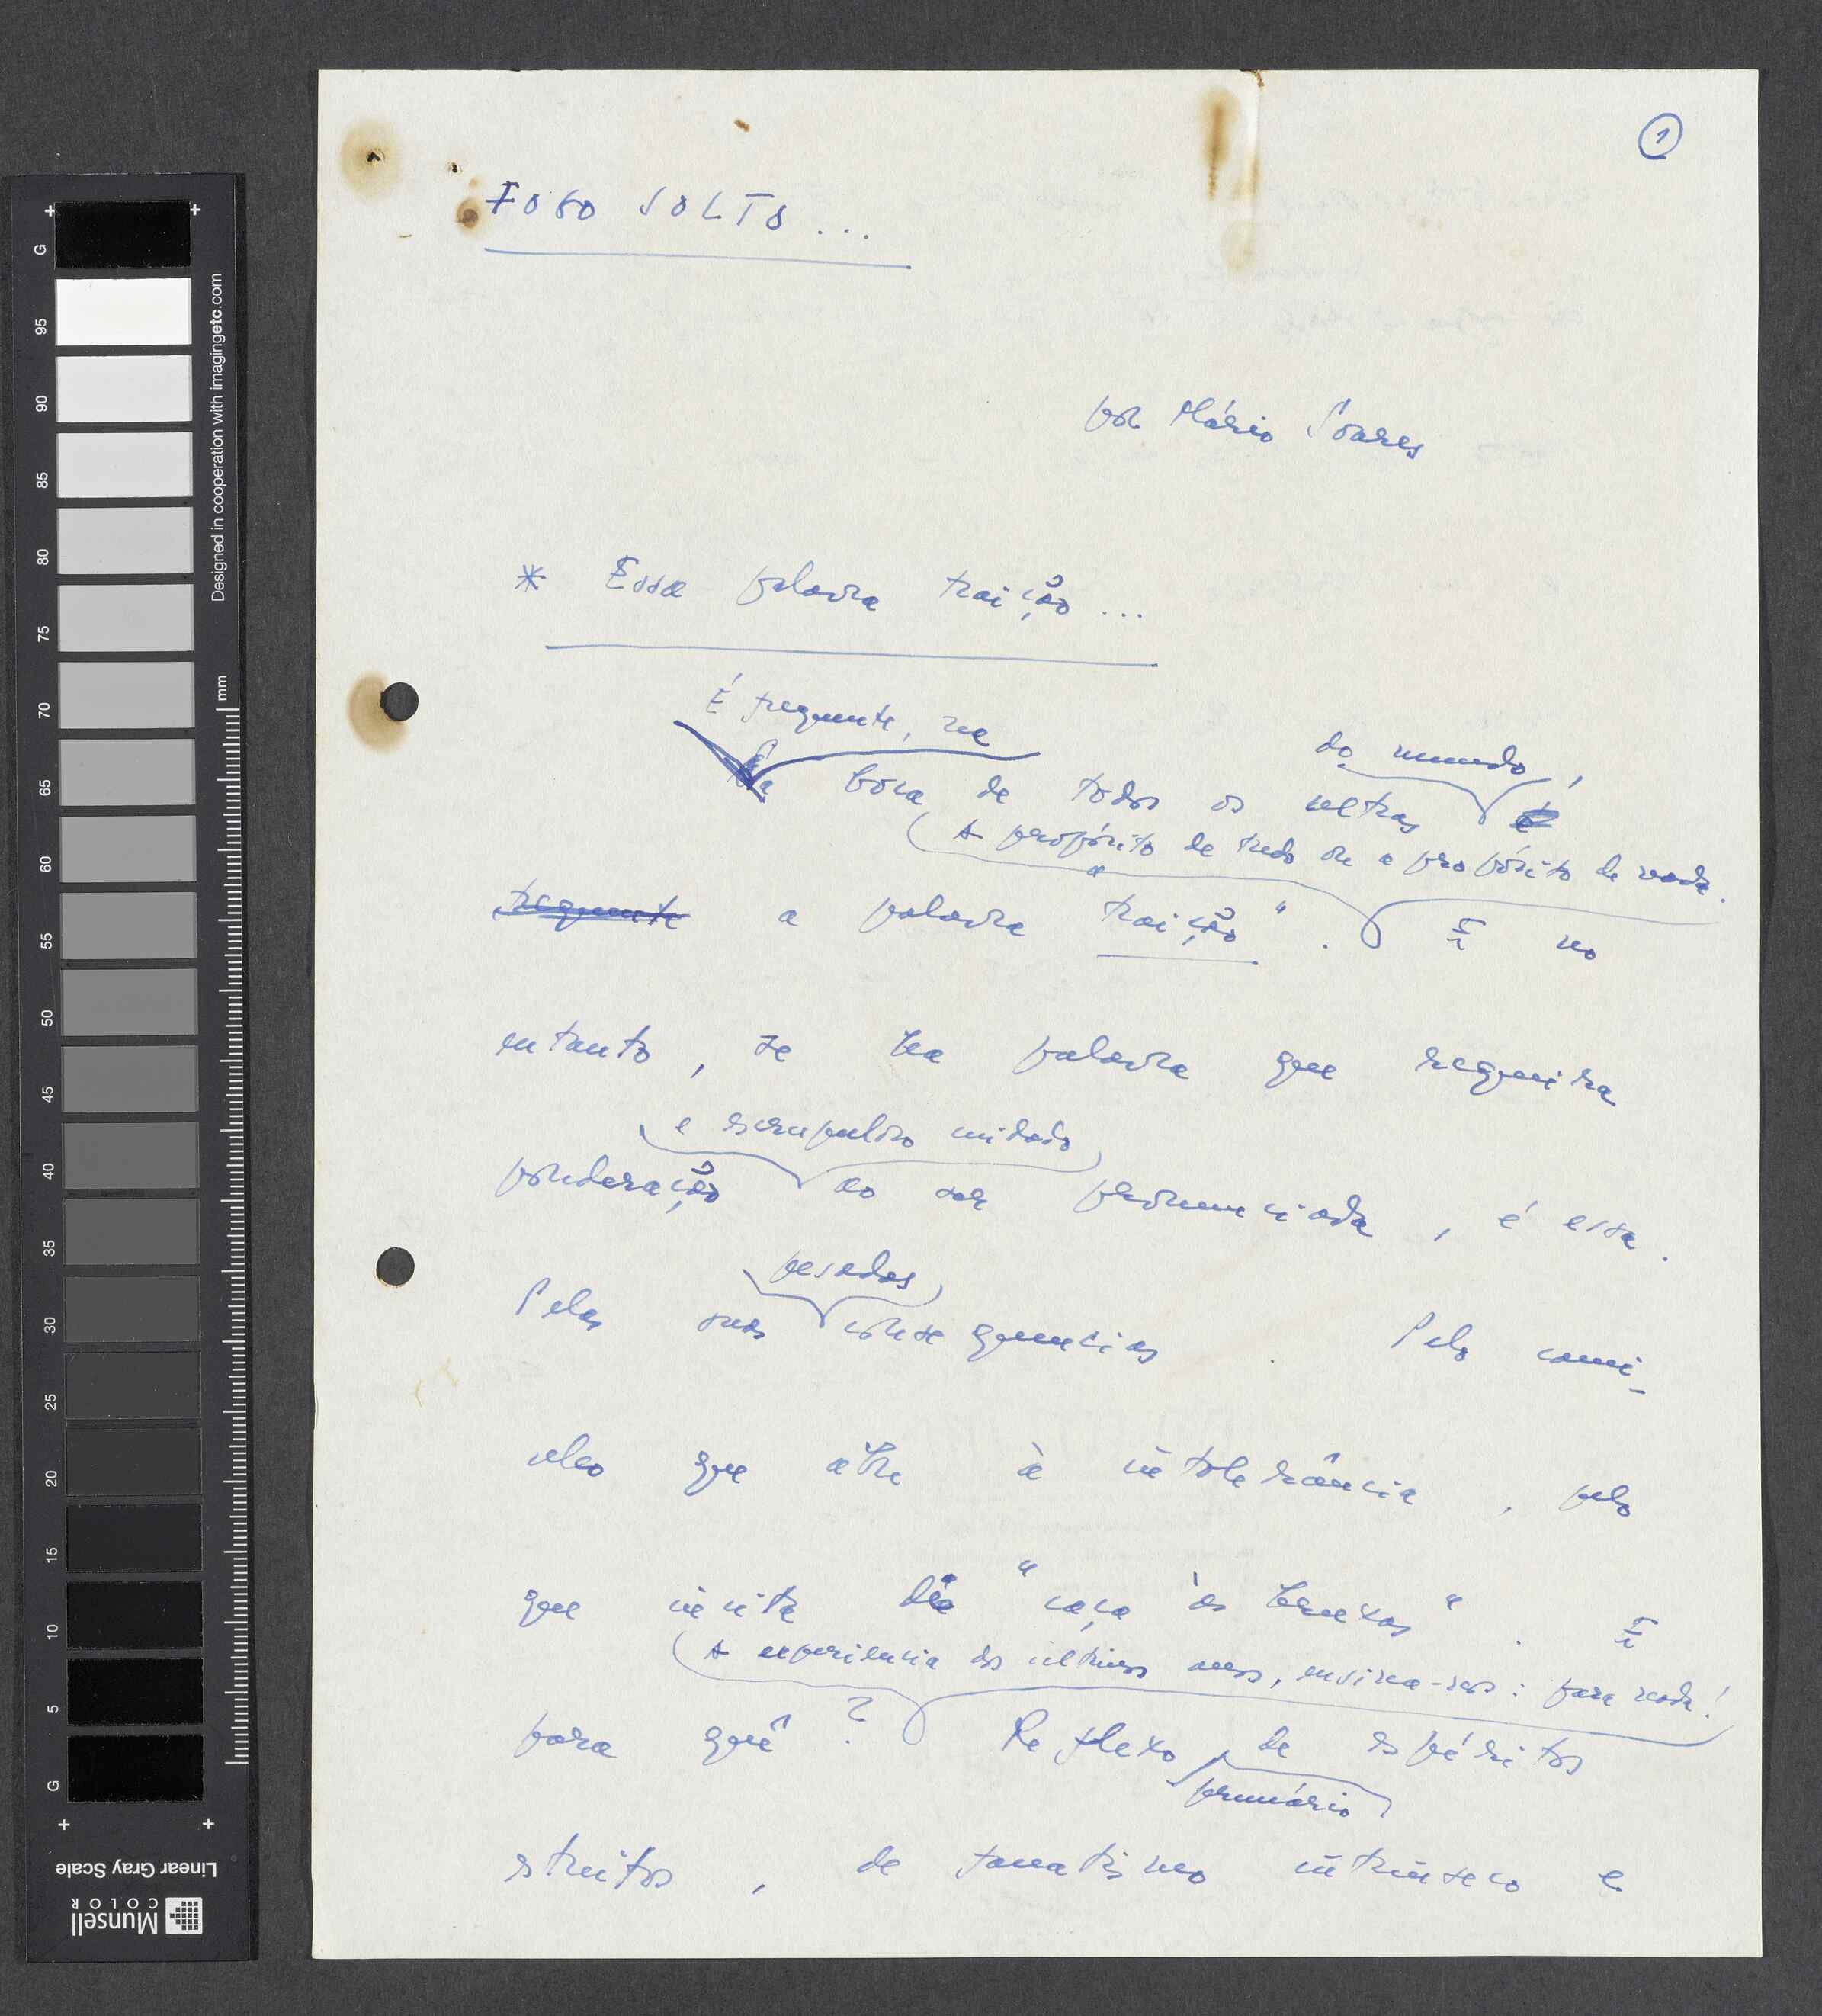 1
FOGO SOLTO...
por Mário Soares
* Essa palavra traição...
É frequente, na
do mundo,
Na boca de todos os ultras é
A propósito de tudo ou a propósito de nada.
frequente a palavra "traição". E no
entanto, se há palavra que requeira
e escrupuloso cuidado
ponderação ao ser pronunciada, é essa.
pesadas
Pelas suas consequencias. Pelo cami-
nho que abre à intolerância, pelo
que incita à "caça às bruxas". E
A experiencia dos ultimos anos, ensina-nos: para nada!
para quê? Reflexo de espíritos
primário
estreitos, de fanatismo intrinseco e
G
95
90
85
80
75
70
65
60
55
50
45
40
35
30
25
20
15
10
5
G
mm
Designed in cooperation with imagingetc.com
Linear Gray Scale
Munsell
COLOR